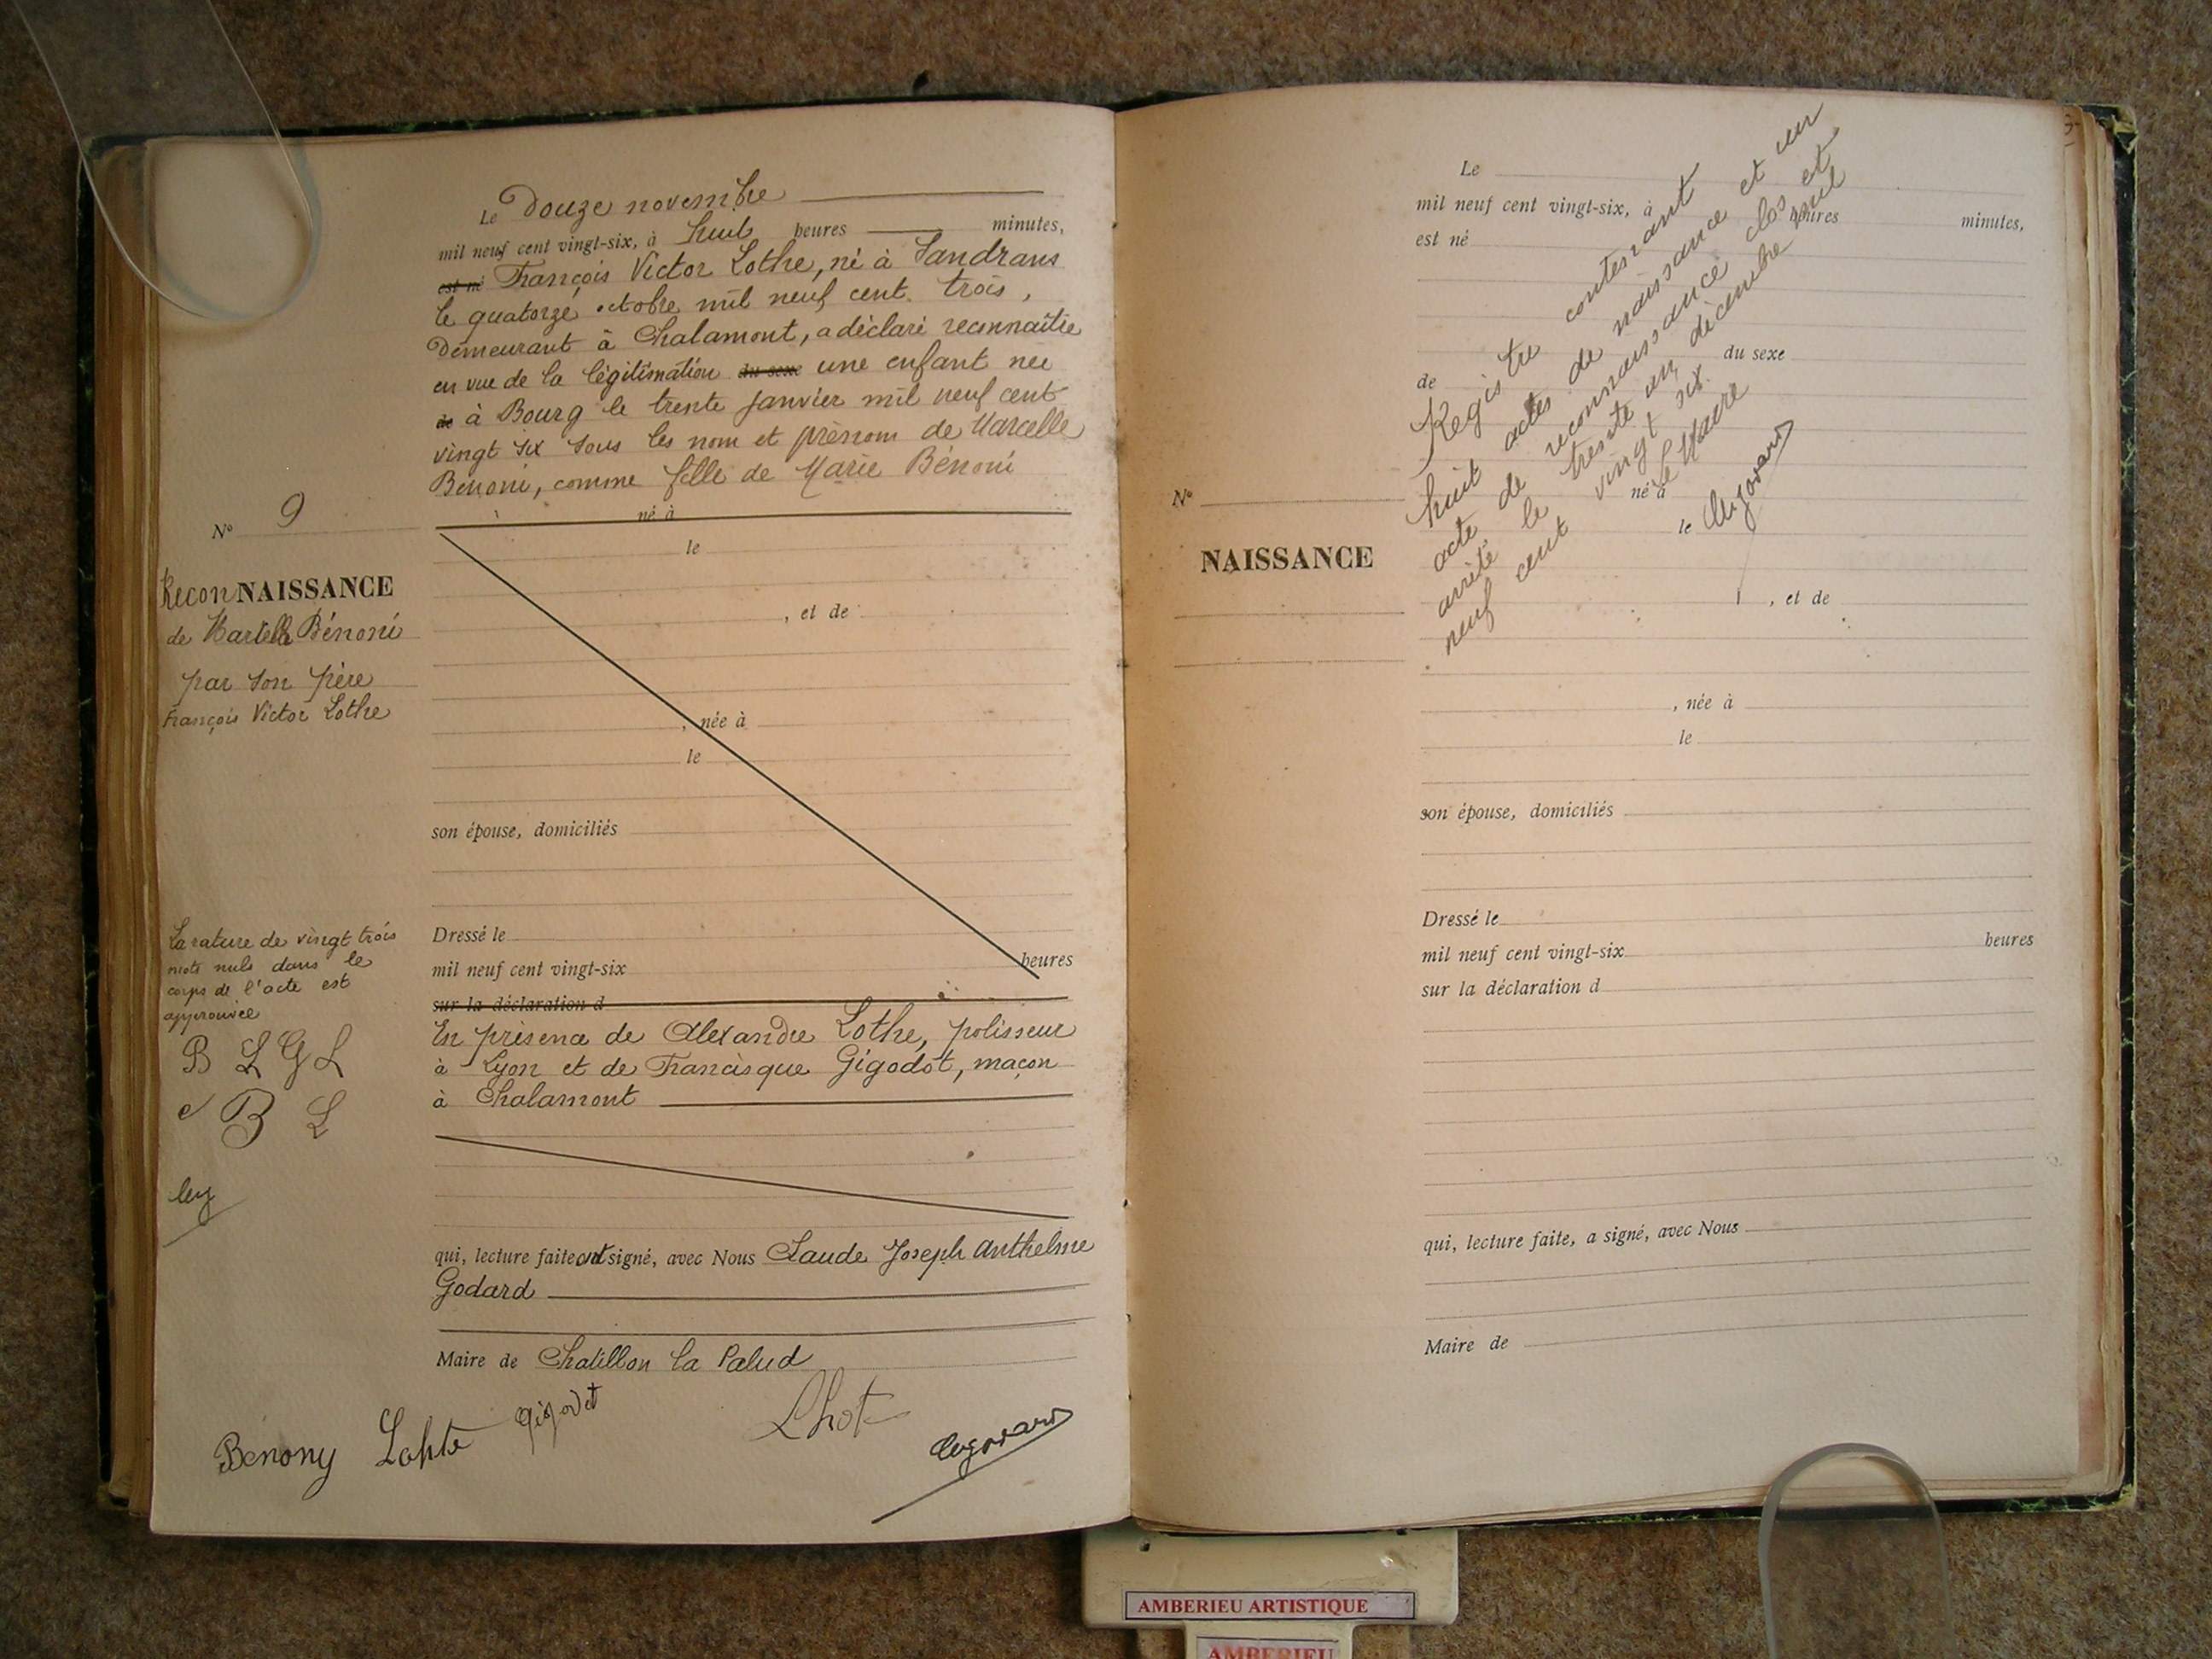 Le Douze novembre
mil neuf cent vingt-six, à huit heures minutes,
est né François Victor Lothe, né à Sandrans
le quatorze octobre mil neuf cent trois,
Demeurant à Chalamont, a déclaré reconnaître
en vue de la légitimation du sexe une enfant née
de à Bourg le trente janvier mil neuf cent
vingt six sous les nom et prénom de Marcelle
Bénoni, comme fille de Marie Bénoni
né à
N° 9
le
Recon NAISSANCE
, et de
de Marcelle Bénoni
par son père
François Victor Lothe
, née à
le
son épouse, domiciliés
La rature de vingt trois
mots nuls dans le
corps de l'acte est
approuvée
B L G L
B L
Dressé le
mil neuf cent vingt-six heures
sur la déclaration d
En présence de Alexandre Lothe, polisseur
à Lyon et de Francisque Gigodot, maçon
à Chalamont
qui, lecture faite ont signé, avec Nous Claude Joseph Anthelme
Godard
Maire de Chatillon la Palud
Benony Lohte Gigodot Lhot
Le
mil neuf cent vingt-six, à heures minutes,
est né
de du sexe
Registre contenant
huit actes de naissance et un
acte de reconnaissance clos et
arrêté le trente un décembre mil
neuf cent vingt six.
Le Maire
N°
né à
le
NAISSANCE
, et de
, née à
le
son épouse, domiciliés
Dressé le
mil neuf cent vingt-six heures
sur la déclaration d
qui, lecture faite, a signé, avec Nous
Maire de
AMBERIEU ARTISTIQUE
AMBERIEU